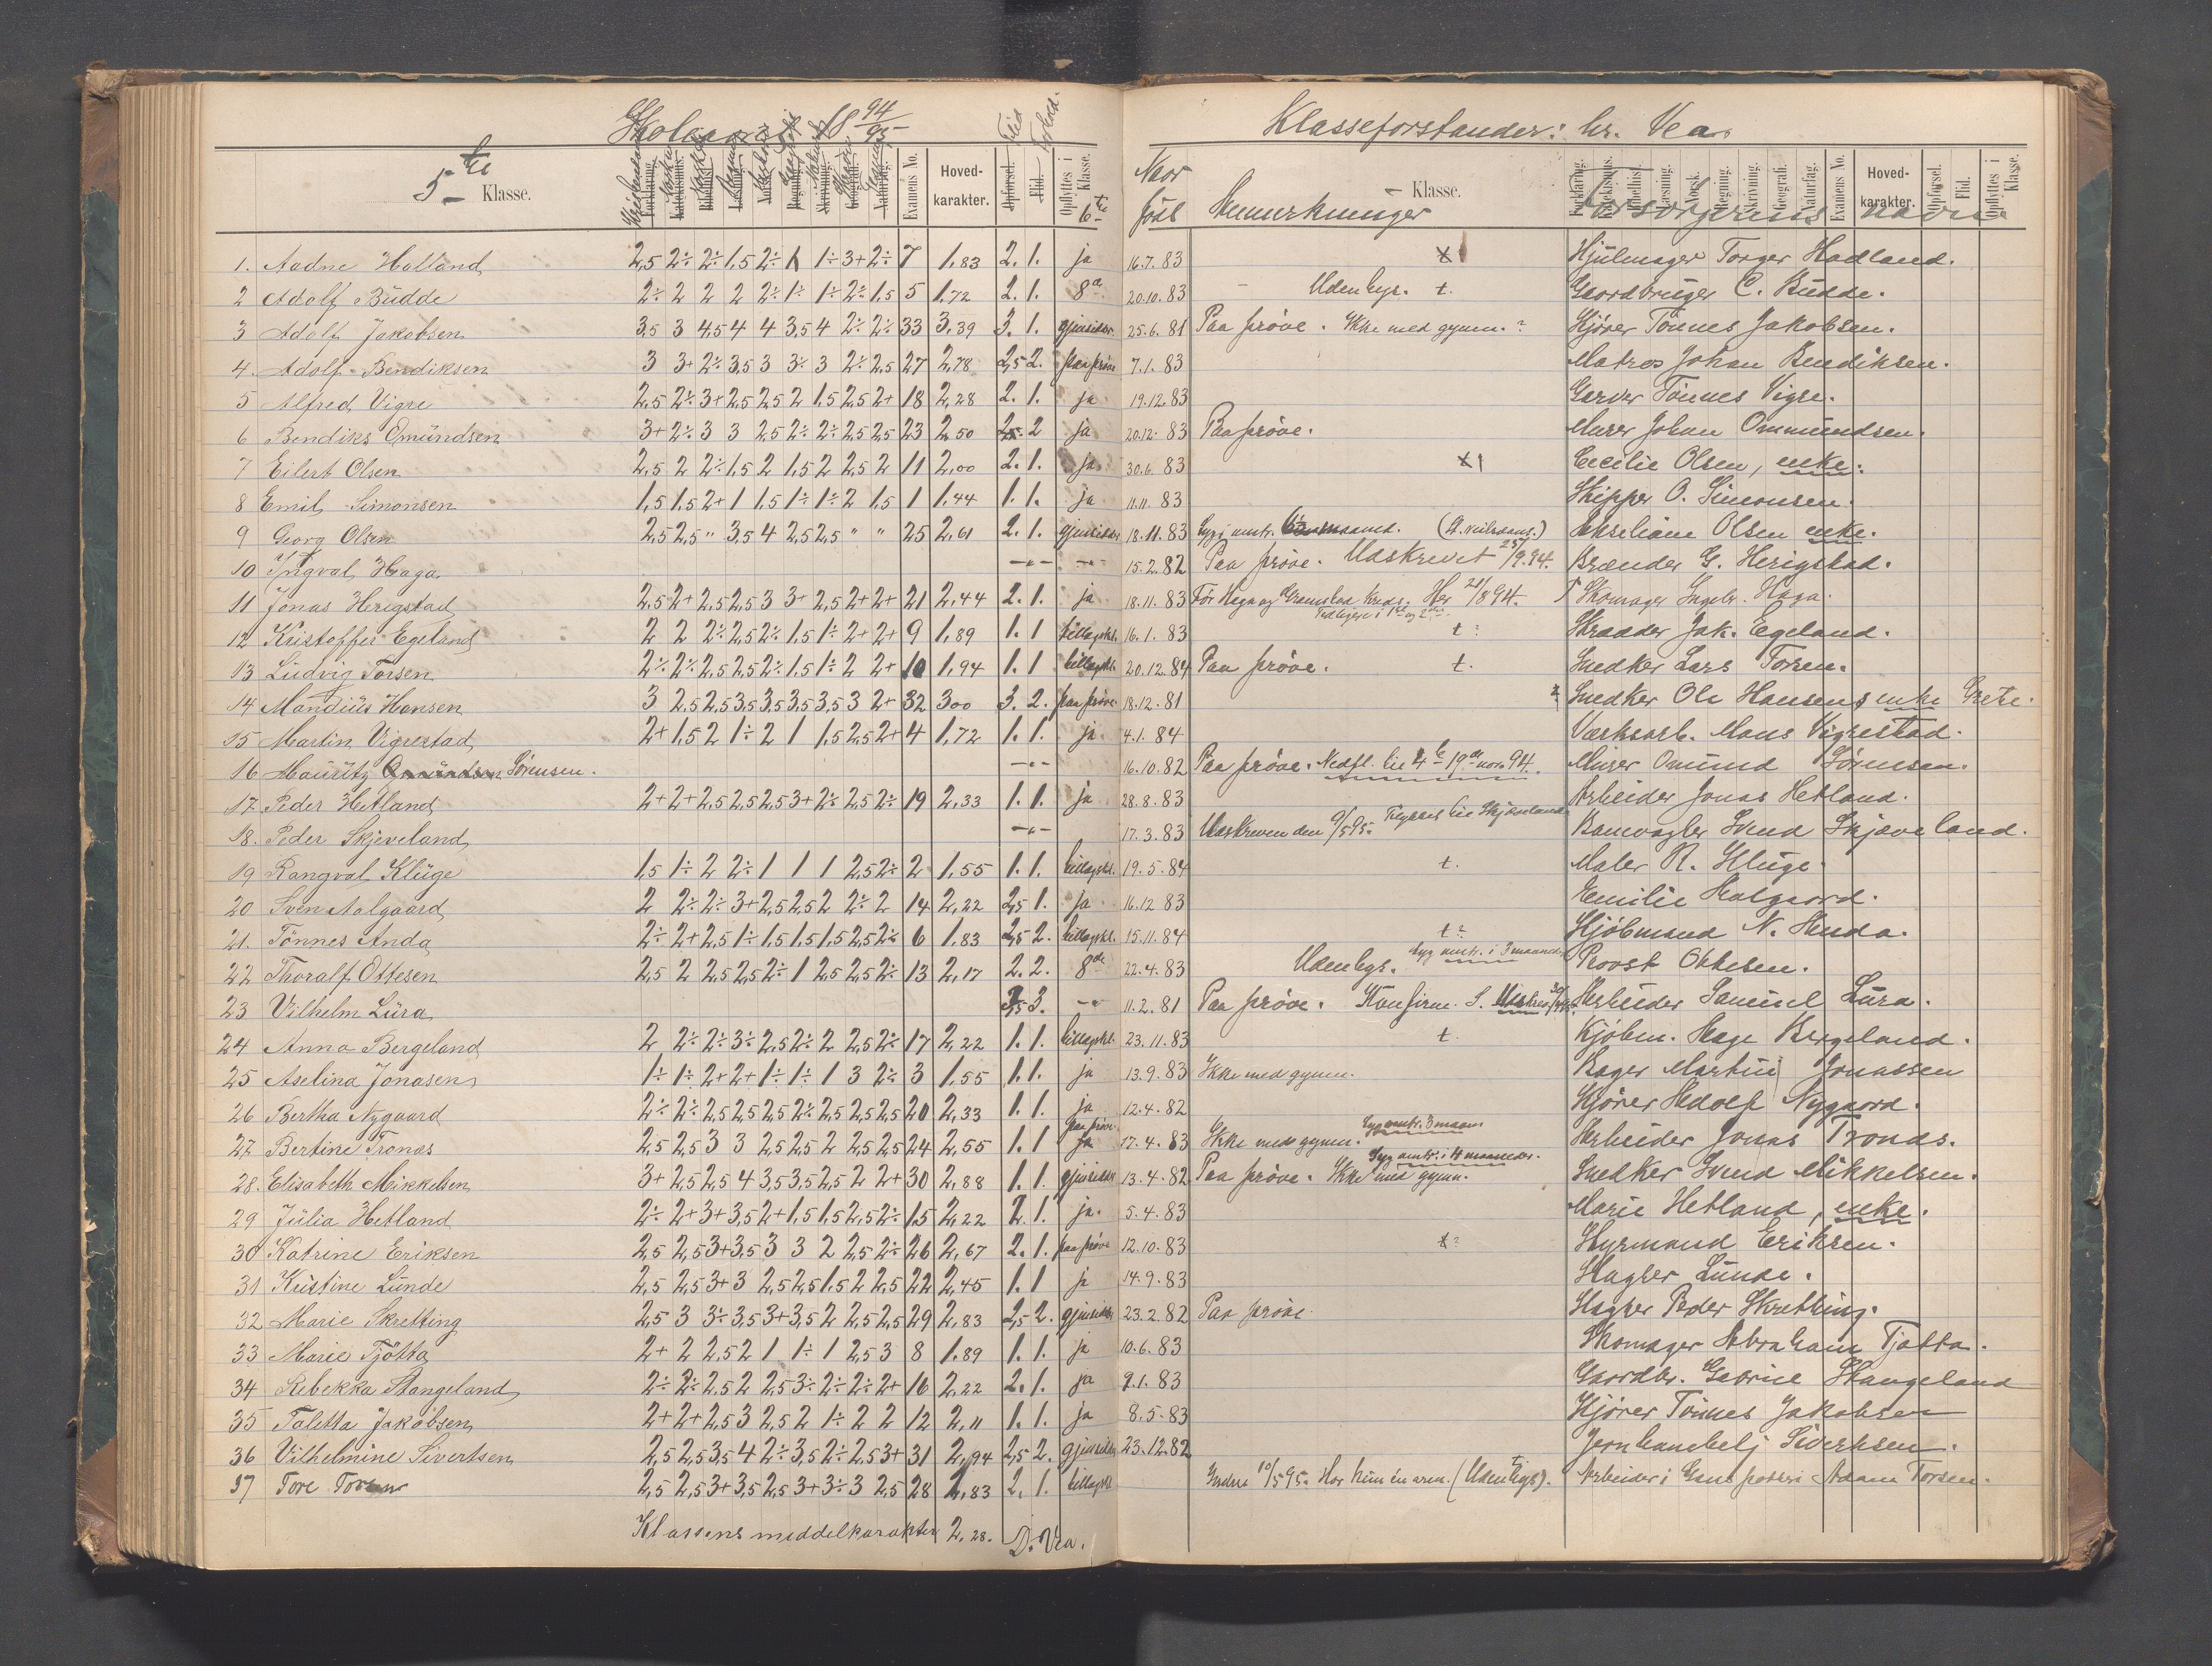 Skoleaaret 18 94/95
Klasseforstander: hr. Vea.
5te Klasse.
Forklaring. Katekismus. Bibelhist. Læsning. Norsk. Regning. Skrivning. Geografi. Naturfag. Examens No. Hoved-karakter. Opførsel. Flid. Opflyttes i 6te Klasse.
Naar født Anmerkninger Klasse. Forsørgerens navn
1. Aadne Hatland 2,5 2÷ 2÷ 1,5 2÷ 1 1÷ 3+ 2÷ 7 1,83 2. 1. ja 16.7.83 Hjulmager Torger Hadland.
2 Adolf Budde 2÷ 2 2 2 2÷ 1÷ 1÷ 2÷ 1,5 5 1,72 2. 1. 8a 20.10.83 Udenbys. t. Gaardbruger C. Budde.
3 Adolf Jakobsen 3,5 3 4,5 4 4 3,5 4 2÷ 2÷ 33 3,39 3. 1. gjensidder 25.6.81 Paa prøve. Ikke med gymn. ? Kjører Tønnes Jakobsen.
4. Adolf Bendiksen 3 3+ 2÷ 3,5 3 3÷ 3 2÷ 2,5 27 2,78 2,5 2. paa prøve 7.1.83 Matros Johan Bendiksen.
5 Alfred Vigre 2,5 2÷ 3+ 2,5 2,5 2 1,5 2,5 2+ 18 2,28 2. 1. ja 19.12.83 Garver Tønnes Vigre.
6 Bendiks Omundsen 3+ 2÷ 3 3 2,5 2÷ 2÷ 2,5 2,5 23 2,50 2,5. 2 ja 20.12.83 Paa prøve. Murer Johan Ommundsen.
7 Eilert Olsen 2,5 2 2÷ 1,5 2 1,5 2 2,5 2 11 2,00 2. 1. ja 30.6.83 Cecilie Olsen, enke.
8 Emil Simonsen 1,5 1,5 2+ 1 1,5 1÷ 1÷ 2 1,5 1 1,44 1. 1. ja 11.11.83 Skipper O. Simonsen.
9 Georg Olsen 2,5 2,5 " 3,5 4 2,5 2,5 " " 25 2,61 2. 1. gjensidder 18.11.83 Olsen enke.
10 Yngval Haga —"— —"— 15.2.82 Paa prøve. Udskrevet 25/9.94. Brænder G. Herigstad.
11 Jonas Herigstad 2,5 2+ 2,5 2,5 3 3+ 2,5 2+ 2+ 21 2,44 2. 1. ja 18.11.83 Før Haga og Kreds. Her 21/8 94. Skomager Ingebr. Haga.
12 Kristoffer Egeland 2 2 2÷ 2,5 2÷ 1,5 1÷ 2+ 2+ 9 1,89 1. 1 tillægskl. 16.1.83 t? Skradder Jak. Egeland.
13 Ludvig Torsen 2÷ 2÷ 2,5 2,5 2÷ 1,5 1÷ 2 2+ 10 1,94 1. 1 tillægskl. 20.12.84 Paa prøve. t. Snedker Lars Torsen.
14 Mandius Hansen 3 2,5 2,5 3,5 3,5 3,5 3,5 3 2+ 32 3,00 3. 2. paa prøve 18.12.81 Snedker Ole Hansens enke Grete.
15 Martin Vigrestad 2+ 1,5 2 1÷ 2 1 1,5 2,5 2+ 4 1,72 1. 1. ja 4.1.84 Værksarb. Mons Vigrestad.
16 Mauritz Omundsen Sörensen. —"— 16.10.82 Paa prøve. Nedfl. til 4b 19de nov. 94. Murer Omund Sørensen.
17. Peder Hetland 2+ 2+ 2,5 2,5 2,5 3+ 2÷ 2,5 2÷ 19 2,33 1. 1. ja 28.8.83 Arbeider Jonas Hetland.
18. Peder Skjeveland —"— 17.3.83 Udskreven den 9/5 95. Flyttet til Skjæveland Banevogter Svend Skjæveland.
19 Rangval Klüge 1,5 1÷ 2 2÷ 1 1 1 2,5 2÷ 2 1,55 1. 1. tillægskl. 19.5.84 t. Maler R. Kluge.
20 Sven Aalgaard 2 2÷ 2÷ 3+ 2,5 2,5 2 2÷ 2 14 2,22 2,5 1. ja 16.12 83 Emilie Aalgaard.
21. Tönnes Anda 2÷ 2+ 2,5 1÷ 1,5 1,5 1,5 2,5 2÷ 6 1,83 2,5 2. tillægskl. 15.11.84 t? Kjøbmand N. Anda.
22 Thoralf Ottesen 2,5 2 2,5 2,5 2÷ 1 2,5 2,5 2÷ 13 2,17 2. 2. 8de 22.4.83 Udenbys. Syg omtr. i 3 maaned. Provst Ottesen.
23 Vilhelm Lura 2,5 3. —"— 11.2.81 Paa prøve. Konfirm. Arbeider Samuel Lura.
24 Anna Bergeland 2 2÷ 2÷ 3÷ 2,5 2÷ 2 2,5 2÷ 17 2,22 1. 1. tillægskl. 23.11.83 t. Kjøbm. Aage Bergeland.
25 Aselina Jonasen 1÷ 1÷ 2+ 2+ 1÷ 1÷ 1 3 2÷ 3 1,55 1. 1. ja 13.9.83 Ikke med gymn. Bager Martin Jonassen
26 Bertha Nygaard 2÷ 2÷ 2,5 2,5 2,5 2÷ 2,5 2,5 2,5 20 2,33 1. 1. ja 12.4.82 Kjører Adolf Nygaard.
27 Bertine Tronas 2,5 2,5 3 3 2,5 2,5 2 2,5 2,5 24 2,55 1. 1 paa prøve ja 17.4.83 Ikke med gymn. Syg omtr. 3 maan Arbeider Jonas Tronas.
28. Elisabeth Mikkelsen 3+ 2,5 2,5 4 3,5 3,5 2,5 2 2+ 30 2,88 1. 1. gjensidder 13.4.82 Paa prøve. Ikke med gymn. Syg omtr. i 4 maaneder. Snedker Svend Mikkelsen.
29 Julia Hetland 2÷ 2+ 3+ 3,5 2+ 1,5 1,5 2,5 2÷ 15 2,22 2. 1. ja. 5.4.83 Marie Hetland, enke.
30 Katrine Eriksen 2,5 2,5 3+ 3,5 3 3 2 2,5 2÷ 26 2,67 2. 1. paa prøve 12.10.83 t? Styrmand Eriksen.
31 Kristine Lunde 2,5 2,5 3+ 3 2,5 2,5 1,5 2 2,5 22 2,45 1. 1 ja 14.9.83 Slagter Lunde.
32 Marie Skretting 2,5 3 3÷ 3,5 3+ 3,5 2 2,5 2,5 29 2,83 2,5 2. gjensidder 23.2.82 Paa prøve. Slagter Peder Skretting.
33 Marie Tjötta 2+ 2 2,5 2 1 1÷ 1 2,5 3 8 1.89 1. 1. ja 10.6.83 Skomager Abraham Tjøtta.
34 Rebekka Stangeland 2÷ 2÷ 2,5 2 2,5 3÷ 2÷ 2÷ 2+ 16 2,22 2. 1. ja 9.1.83 Gaardbr. Gabriel Stangeland
35 Taletta Jakobsen 2+ 2+ 2,5 3 2,5 2 1÷ 2 2 12 2,11 1. 1. ja 8.5.83 Kjører Tønnes Jakobsen
36 Vilhelmine Sivertsen 2,5 2,5 3,5 4 2÷ 3,5 2÷ 2,5 3+ 31 2,94 2,5 2. gjensidder 23.12.82 Sivertsen.
37 Tore Torsen 2,5 2,5 3+ 3,5 2,5 3+ 3÷ 3 2,5 28 2,83 2. 1. tillægskl Endres 10/5 95. Har kun én arm. (Udenbys). Arbeider i Adam Torsen.
Klassens middelkarakter 2,28. D. Vea.